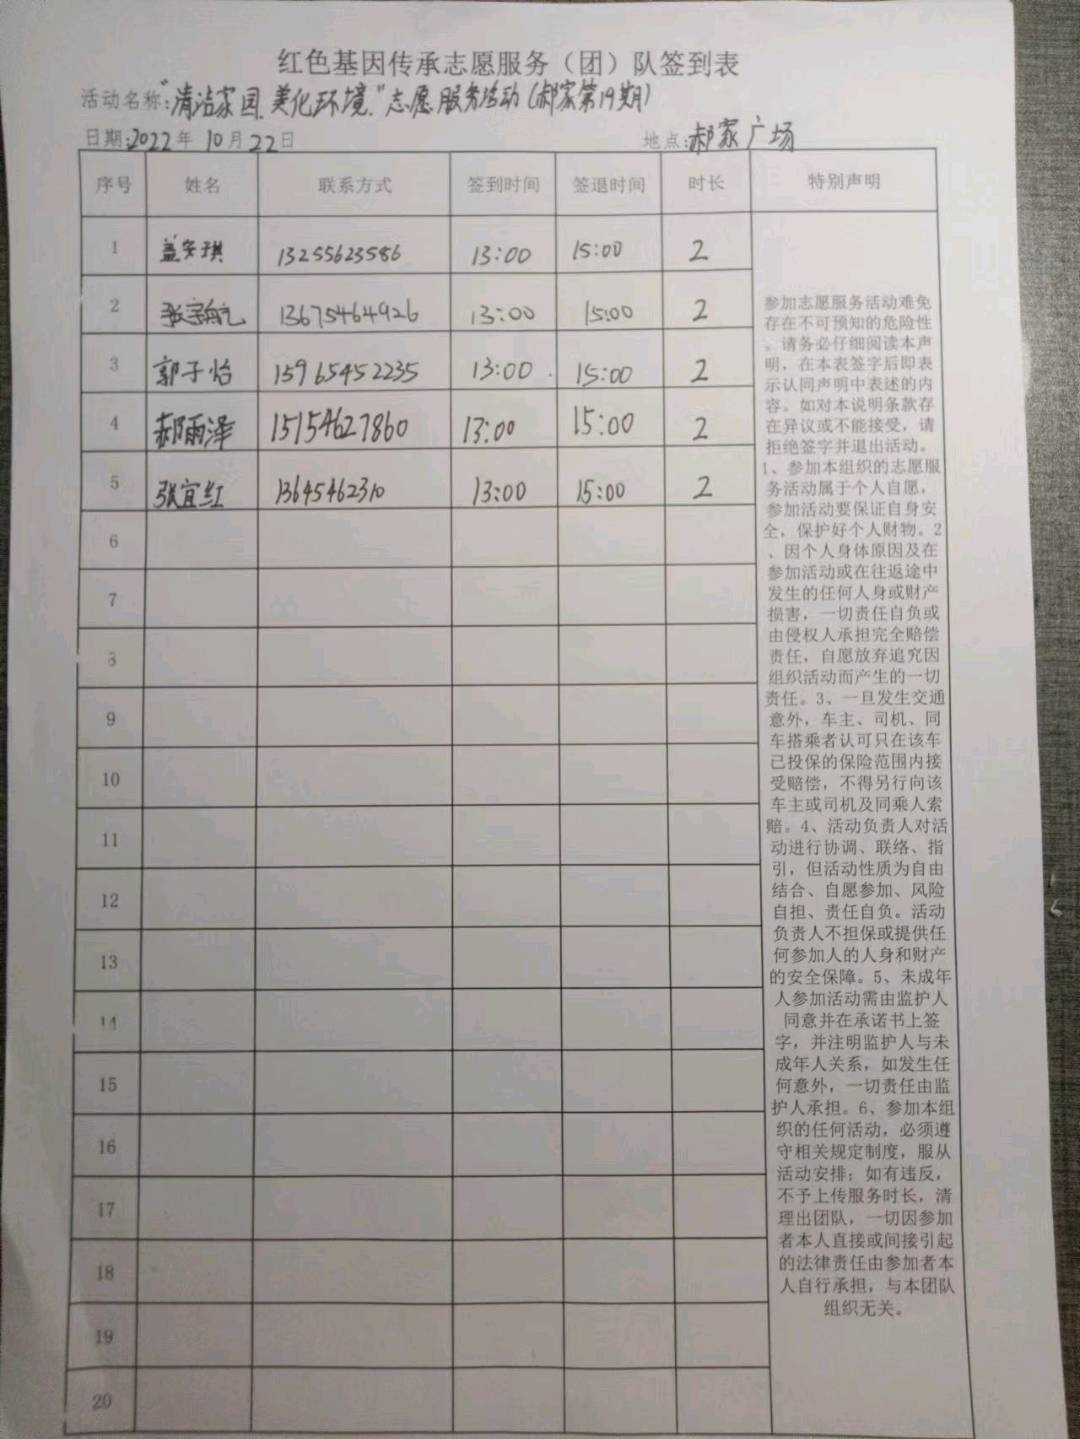 红色基因传承志愿服务（团）队签到表
活动名称："清洁家园，美化环境"志愿服务活动（郝家第19期）
日期：2022年 10月22日 地点：郝家广场
序号 姓名 联系方式 签到时间 签退时间 时长 特别声明
1 盖安琪 13255623586 13:00 15:00 2
2 张宇航 13675464926 13:00 15:00 2
3 郭子怡 15965452235 13:00 15:00 2
4 郝雨泽 15154627860 13:00 15:00 2
5 张宜红 13645462310 13:00 15:00 2
6
7
8
9
10
11
12
13
14
15
16
17
18
19
20
参加志愿服务活动难免
存在不可预知的危险性
。请务必仔细阅读本声
明，在本表签字后即表
示认同声明中表述的内
容。如对本说明条款存
在异议或不能接受，请
拒绝签字并退出活动。
1、参加本组织的志愿服
务活动属于个人自愿，
参加活动要保证自身安
全，保护好个人财物。2
、因个人身体原因及在
参加活动或在往返途中
发生的任何人身或财产
损害，一切责任自负或
由侵权人承担完全赔偿
责任，自愿放弃追究因
组织活动而产生的一切
责任。3、一旦发生交通
意外，车主、司机、同
车搭乘者认可只在该车
已投保的保险范围内接
受赔偿，不得另行向该
车主或司机及同乘人索
赔。4、活动负责人对活
动进行协调、联络、指
引，但活动性质为自由
结合、自愿参加、风险
自担、责任自负。活动
负责人不担保或提供任
何参加人的人身和财产
的安全保障。5、未成年
人参加活动需由监护人
同意并在承诺书上签
字，并注明监护人与未
成年人关系，如发生任
何意外，一切责任由监
护人承担。6、参加本组
织的任何活动，必须遵
守相关规定制度，服从
活动安排；如有违反，
不予上传服务时长，清
理出团队，一切因参加
者本人直接或间接引起
的法律责任由参加者本
人自行承担，与本团队
组织无关。